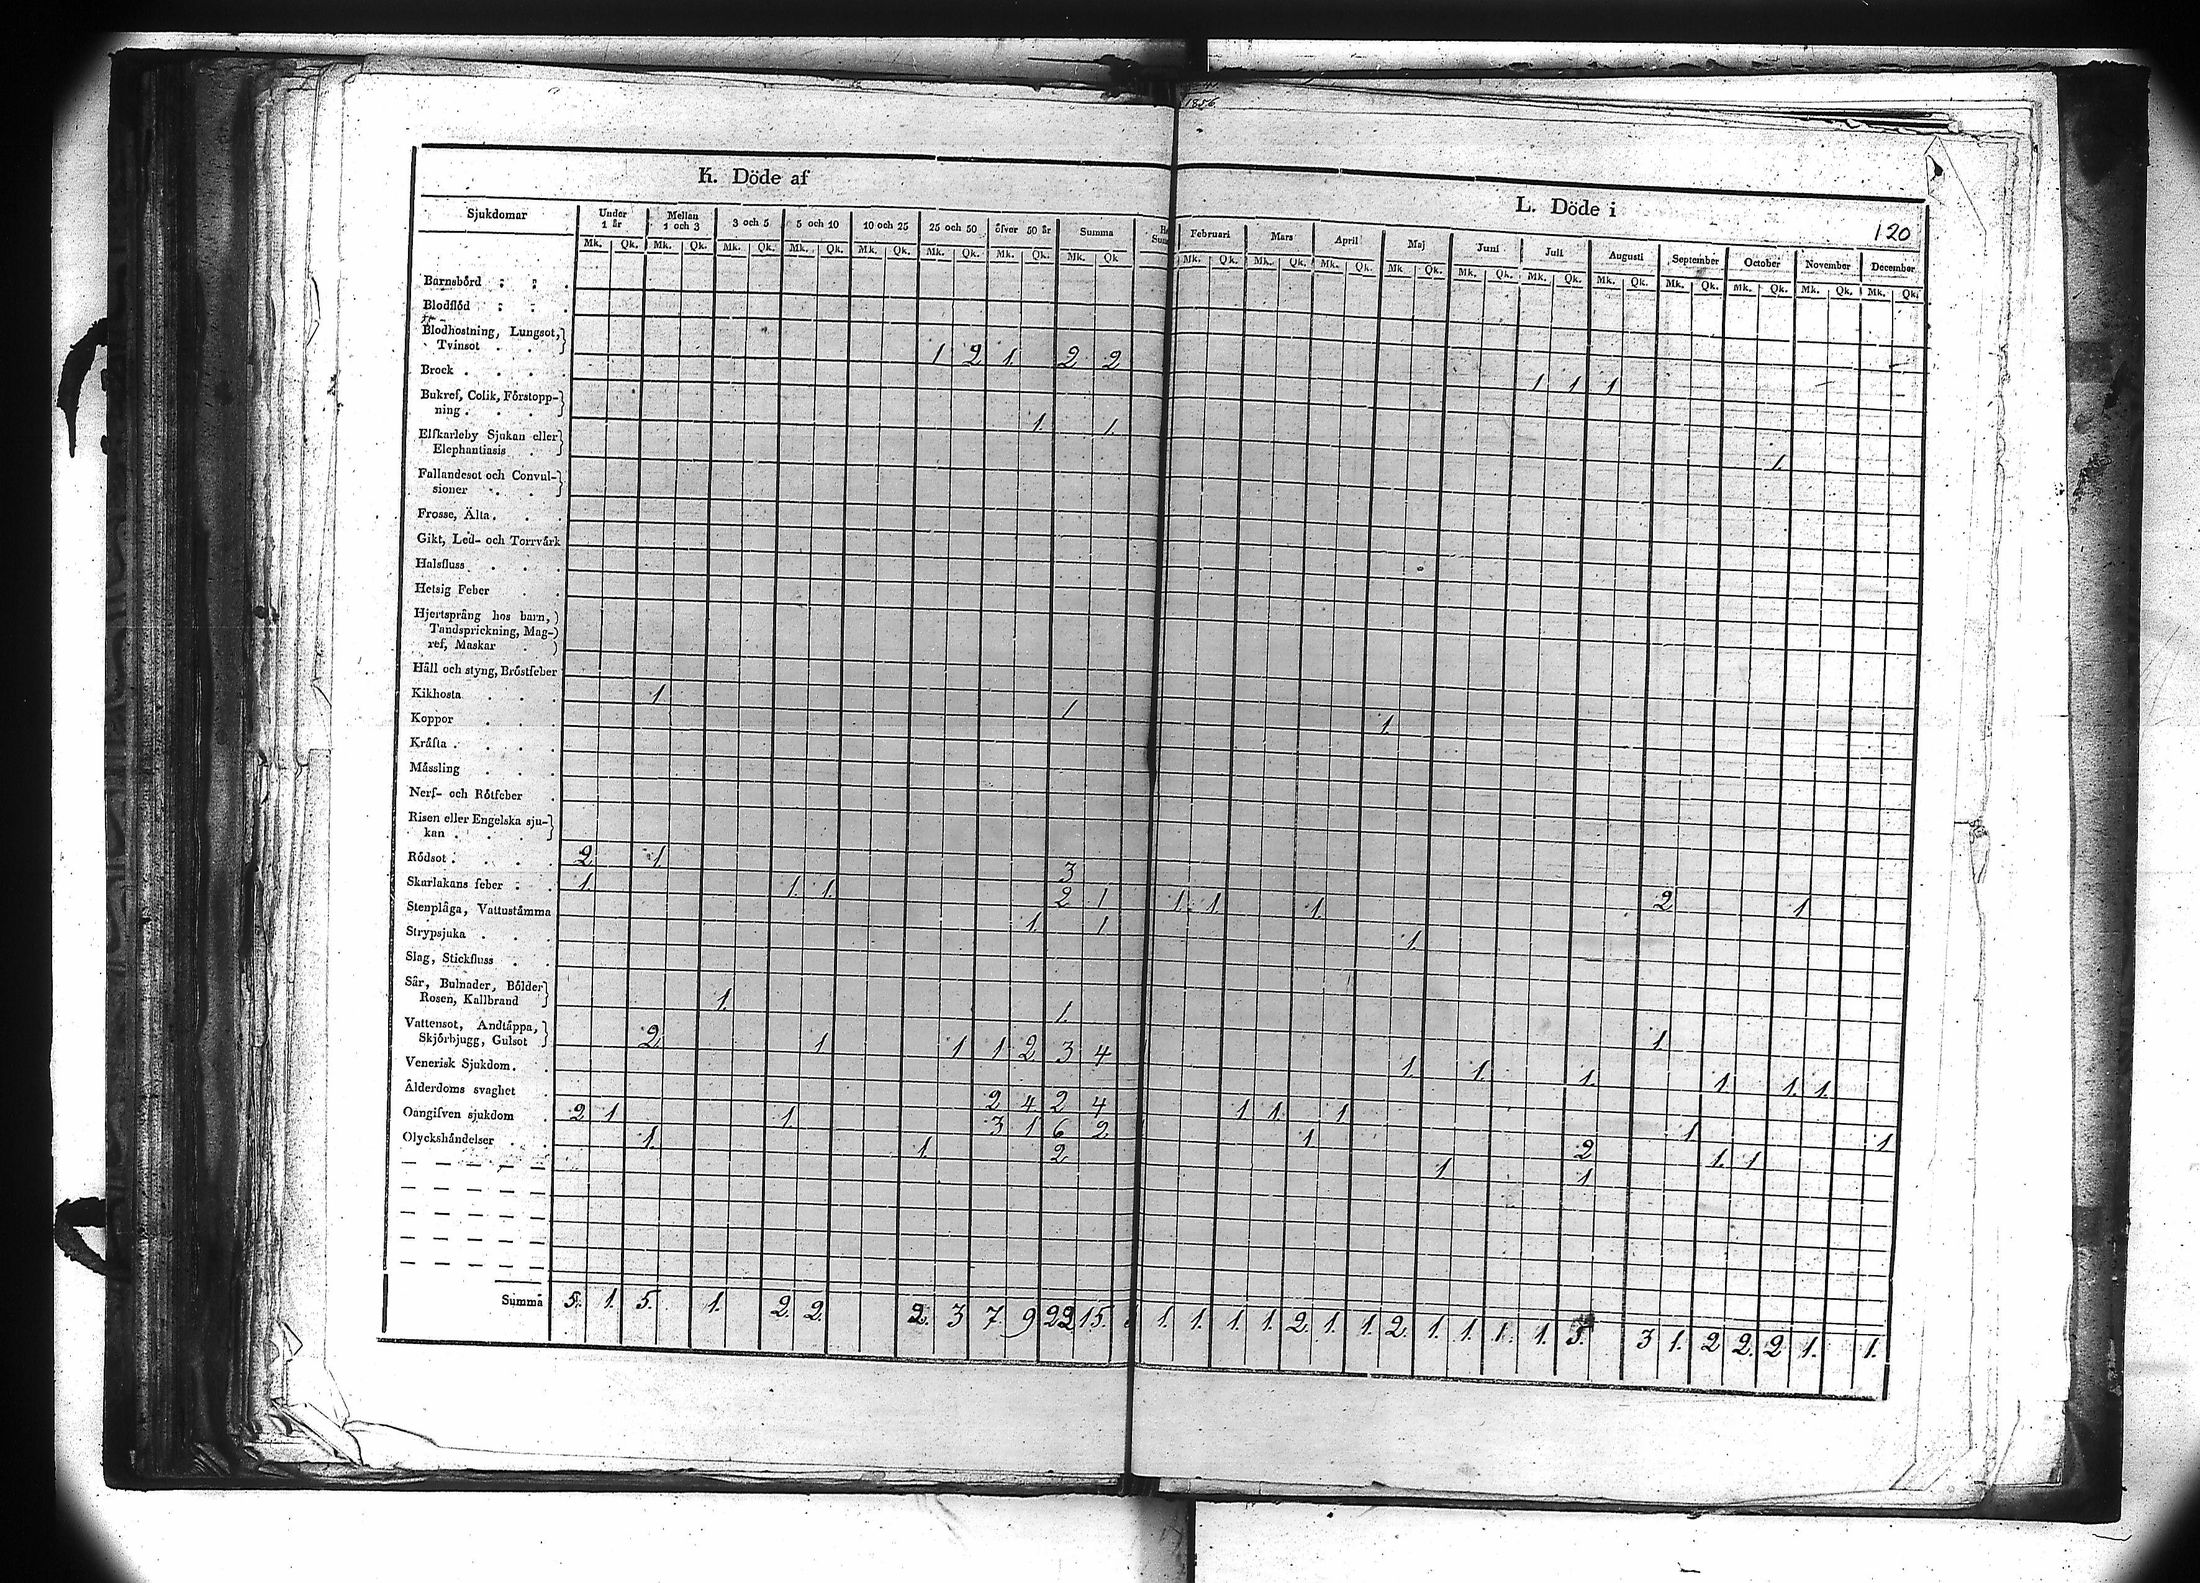 1856
K. Döde af
L. Döde i
120
Sjukdomar Under 1 år Mellan 1 och 3 3 och 5 5 och 10 10 och 25 25 och 50 öfver 50 år Summa
Februari Mars April Maj Juni Juli Augusti September October November December
Mk. Qk. Mk. Qk. Mk. Qk. Mk. Qk. Mk. Qk. Mk. Qk. Mk. Qk. Mk. Qk
Mk. Qk. Mk. Qk. Mk. Qk. Mk. Qk. Mk. Qk. Mk. Qk. Mk. Qk. Mk. Qk. Mk. Qk. Mk. Qk. Mk. Qk.
Barnsbörd
Blodflöd
Blodhostning, Lungsot,
Tvinsot 1 2 1. 2 2 1 1 1
Brock
Bukref, Colik, Förstopp-
ning 1. 1. 1.
Elfkarleby Sjukan eller
Elephantiasis
Fallandesot och Convul-
sioner
Frosse, Älta
Gikt, Led- och Torrvärk
Halsfluss
Hetsig Feber
Hjertsprång hos barn,
Tandsprickning, Mag-
ref, Maskar
Håll och styng, Bröstfeber
Kikhosta 1. 1 1.
Koppor
Kräfta
Mässling
Nerf- och Rötfeber
Risen eller Engelska sju-
kan
Rödsot 2 1. 3 2 1
Skarlakans feber 1. 1. 1. 2 1 1. 1. 1.
Stenplåga, Vattustämma 1. 1 1.
Strypsjuka
Slag, Stickfluss
Sår, Bulnader, Bölder
Rosen, Kallbrand 1. 1. 1.
Vattensot, Andtäppa,
Skjörbjugg, Gulsot 2 1 1 1 2 3 4 1. 1. 1. 1. 1. 1.
Venerisk Sjukdom
Ålderdoms svaghet 2 4 2 4 1 1. 1 1. 1
Oangifven sjukdom 2 1 1 3 1 6 2 1. 2 1. 1
Olyckshändelser 1. 1. 2 1 1
Summa 5. 1. 5. 1. 2. 2. 2. 3 7. 9 22 15. 1. 1. 1. 1. 2. 1. 1. 2. 1. 1. 1. 1. 5. 3 1. 2 2. 2 1. 1.